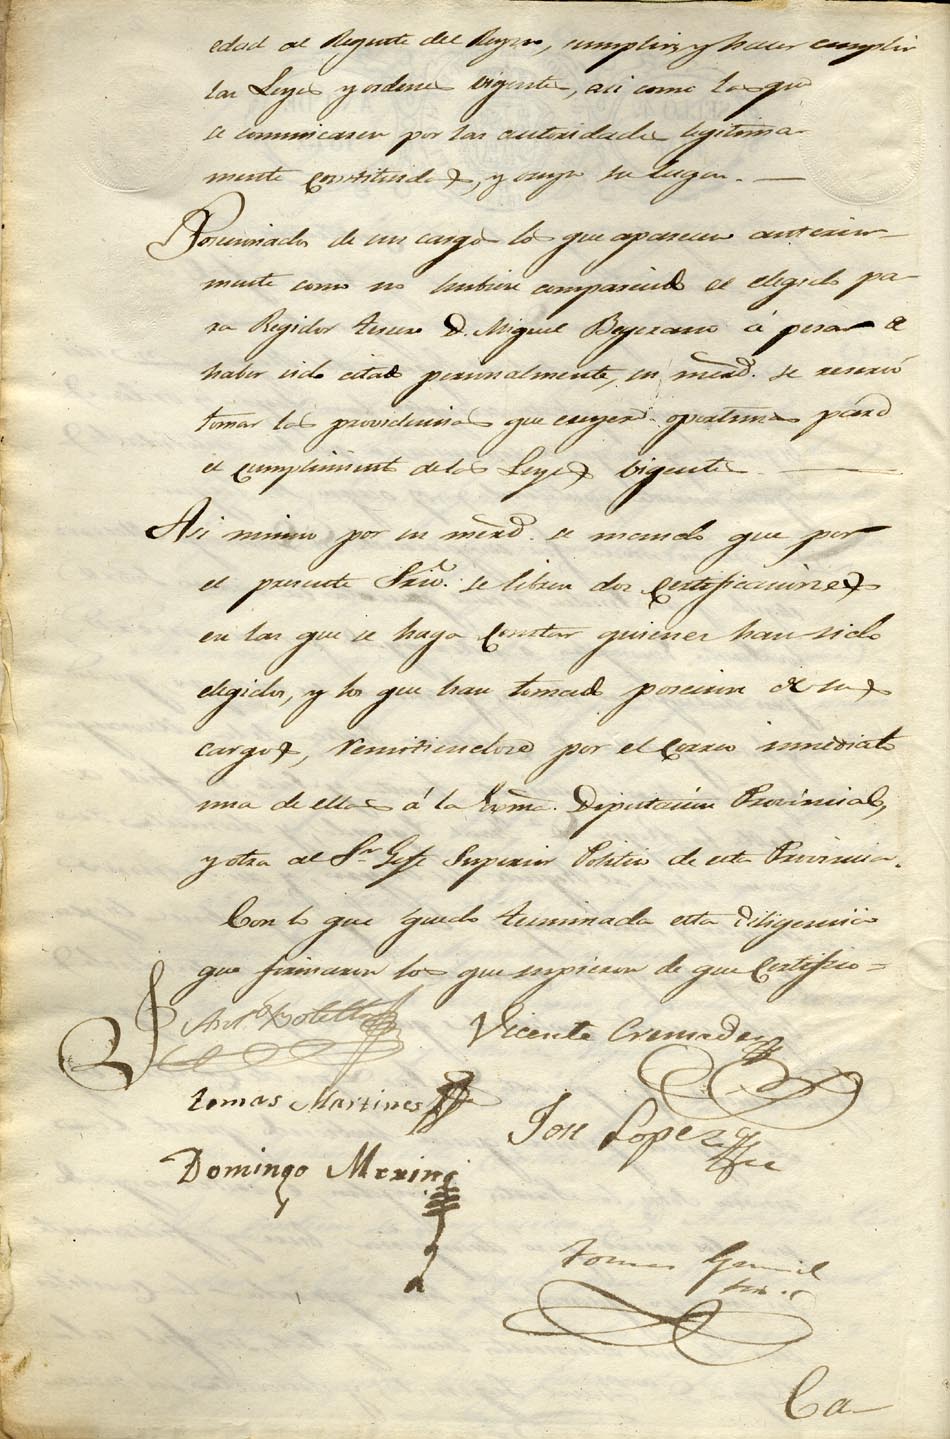 edad al Regente del Reyno, cumplir y hacer cumplir
las Leyes y ordenes vigentes, asi como las que
se comunicaren por las autoridades legitima-
mente constituidas, y ocupn su lugar. —
Posesionados de sus cargos los que aparecen anterior-
mente como no hubiere comparecido el elegido pa-
ra Regidor tercero D. Miguel Bejerano á pesar de
haber sido citado personalmente, su merd. se reservó
tomar las providencias que creyera oportunas para
el cumplimiento de las Leyes vigentes. —
Asi mismo por su merd. se mando que por
el presente Srio. se libren dos Certificaciones
en las que se haga constar quienes han sido
elegidos, y los que han tomado posecion de sus
cargos, remitiendose por el correo inmediato
una de ellas á la Exma. Diputacion Provincial,
y otra al Sr Gefe Superior Politico de esta Provincia.
Con lo que quedo terminada esta diligencia
que firmaron los que supieron de que Certifico =
Anto. Botella
Vicente Cremades
tomas Martines
Jose Lopez
Domingo Merino
Tomas
Ca-